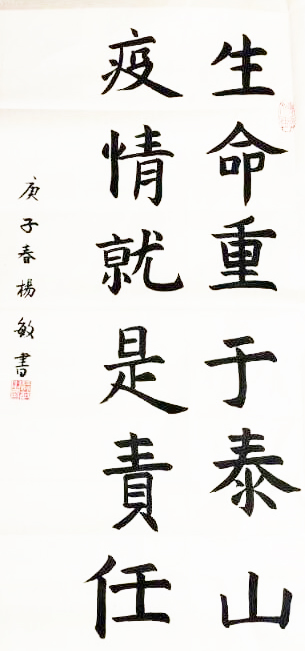 生命重于泰山
疫情就是責任
庚子春楊敏書